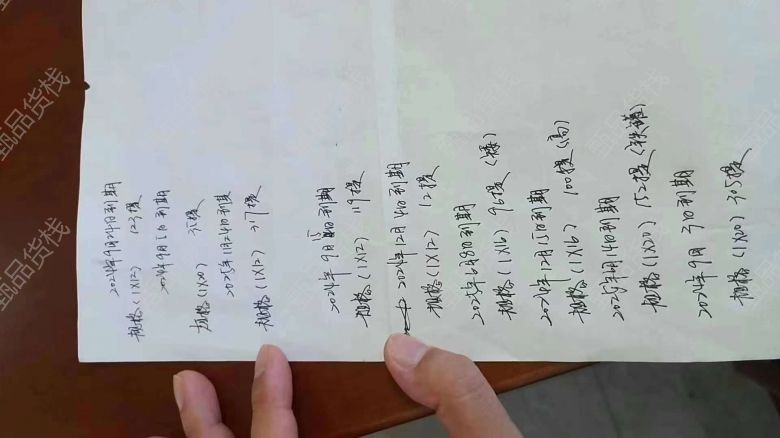 2024年9月24日到期
规格(1X12) 123提
2024年9月5日到期
规格(1X20) 35提
2025年1月24日到期
规格(1X12) 27提
2024年9月15日到期
规格(1X12) 119提
2024年12月4日到期
规格(1X12) 12提
2025年6月8日到期
规格(1X16) 96提
2024年12月15日到期
规格(1X16) 100提(高)
2025年1月14日到期
规格(1X20) 152提(铁罐)
2024年9月3日到期
规格(1X20) 305提
甄品货栈